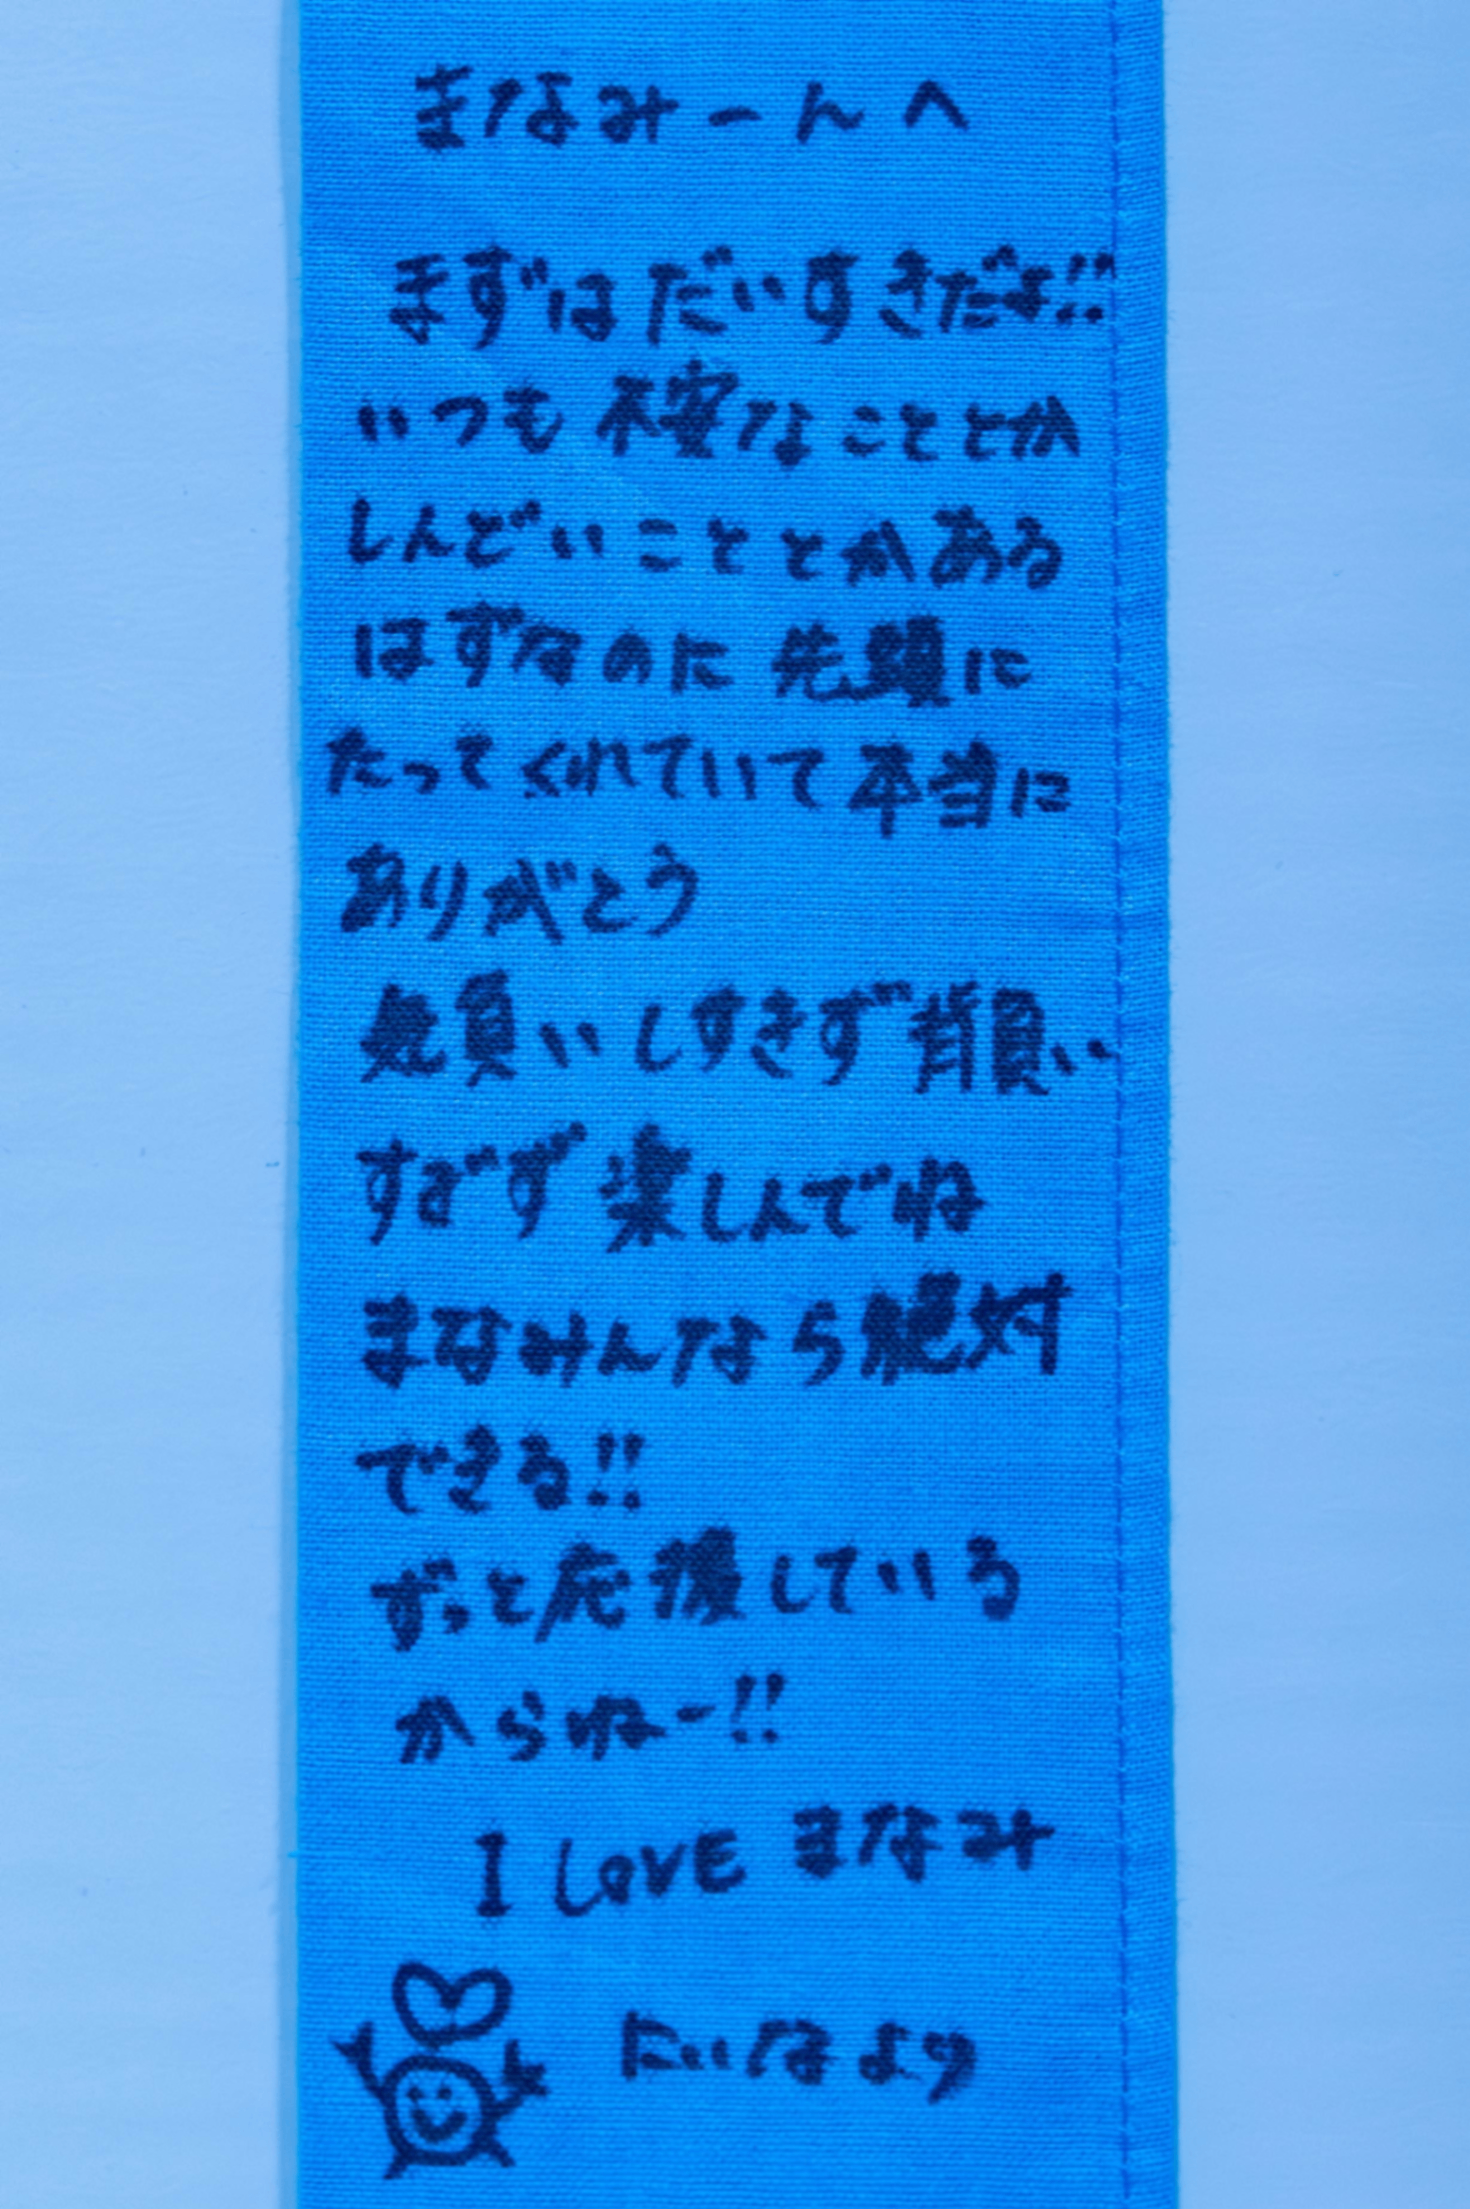 まなみーんへ
まずはだいすきだよ!!
いつも不安なこととか
しんどいこととかある
はずなのに先頭に
たってくれていて本当に
ありがとう
気負いしすぎず背負い
すぎず楽しんでね
まなみんなら絶対
できる!!
ずっと応援している
からねー!!
I LOVE まなみ
にいなより